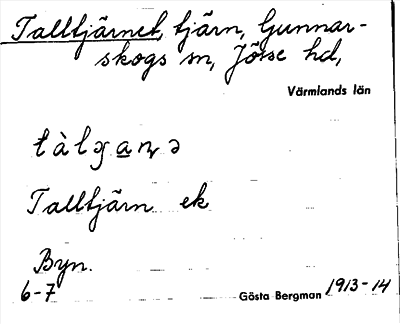 Talltjärnet, tjärn, Gunnar-
skogs sn, Jösse hd,
Värmlands län
Talltjärn ek
Byn.
6-7
Gösta Bergman 1913-14